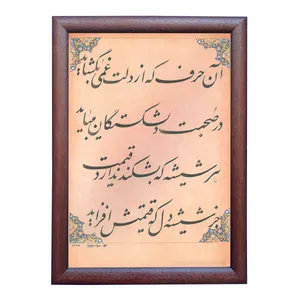 آن حرف که از دلت غمی بگشاید
در صحبت دلشکستگان میباید
هر شیشه که بشکند ندارد قیمت
جز شیشه دل که قیمتش افزاید